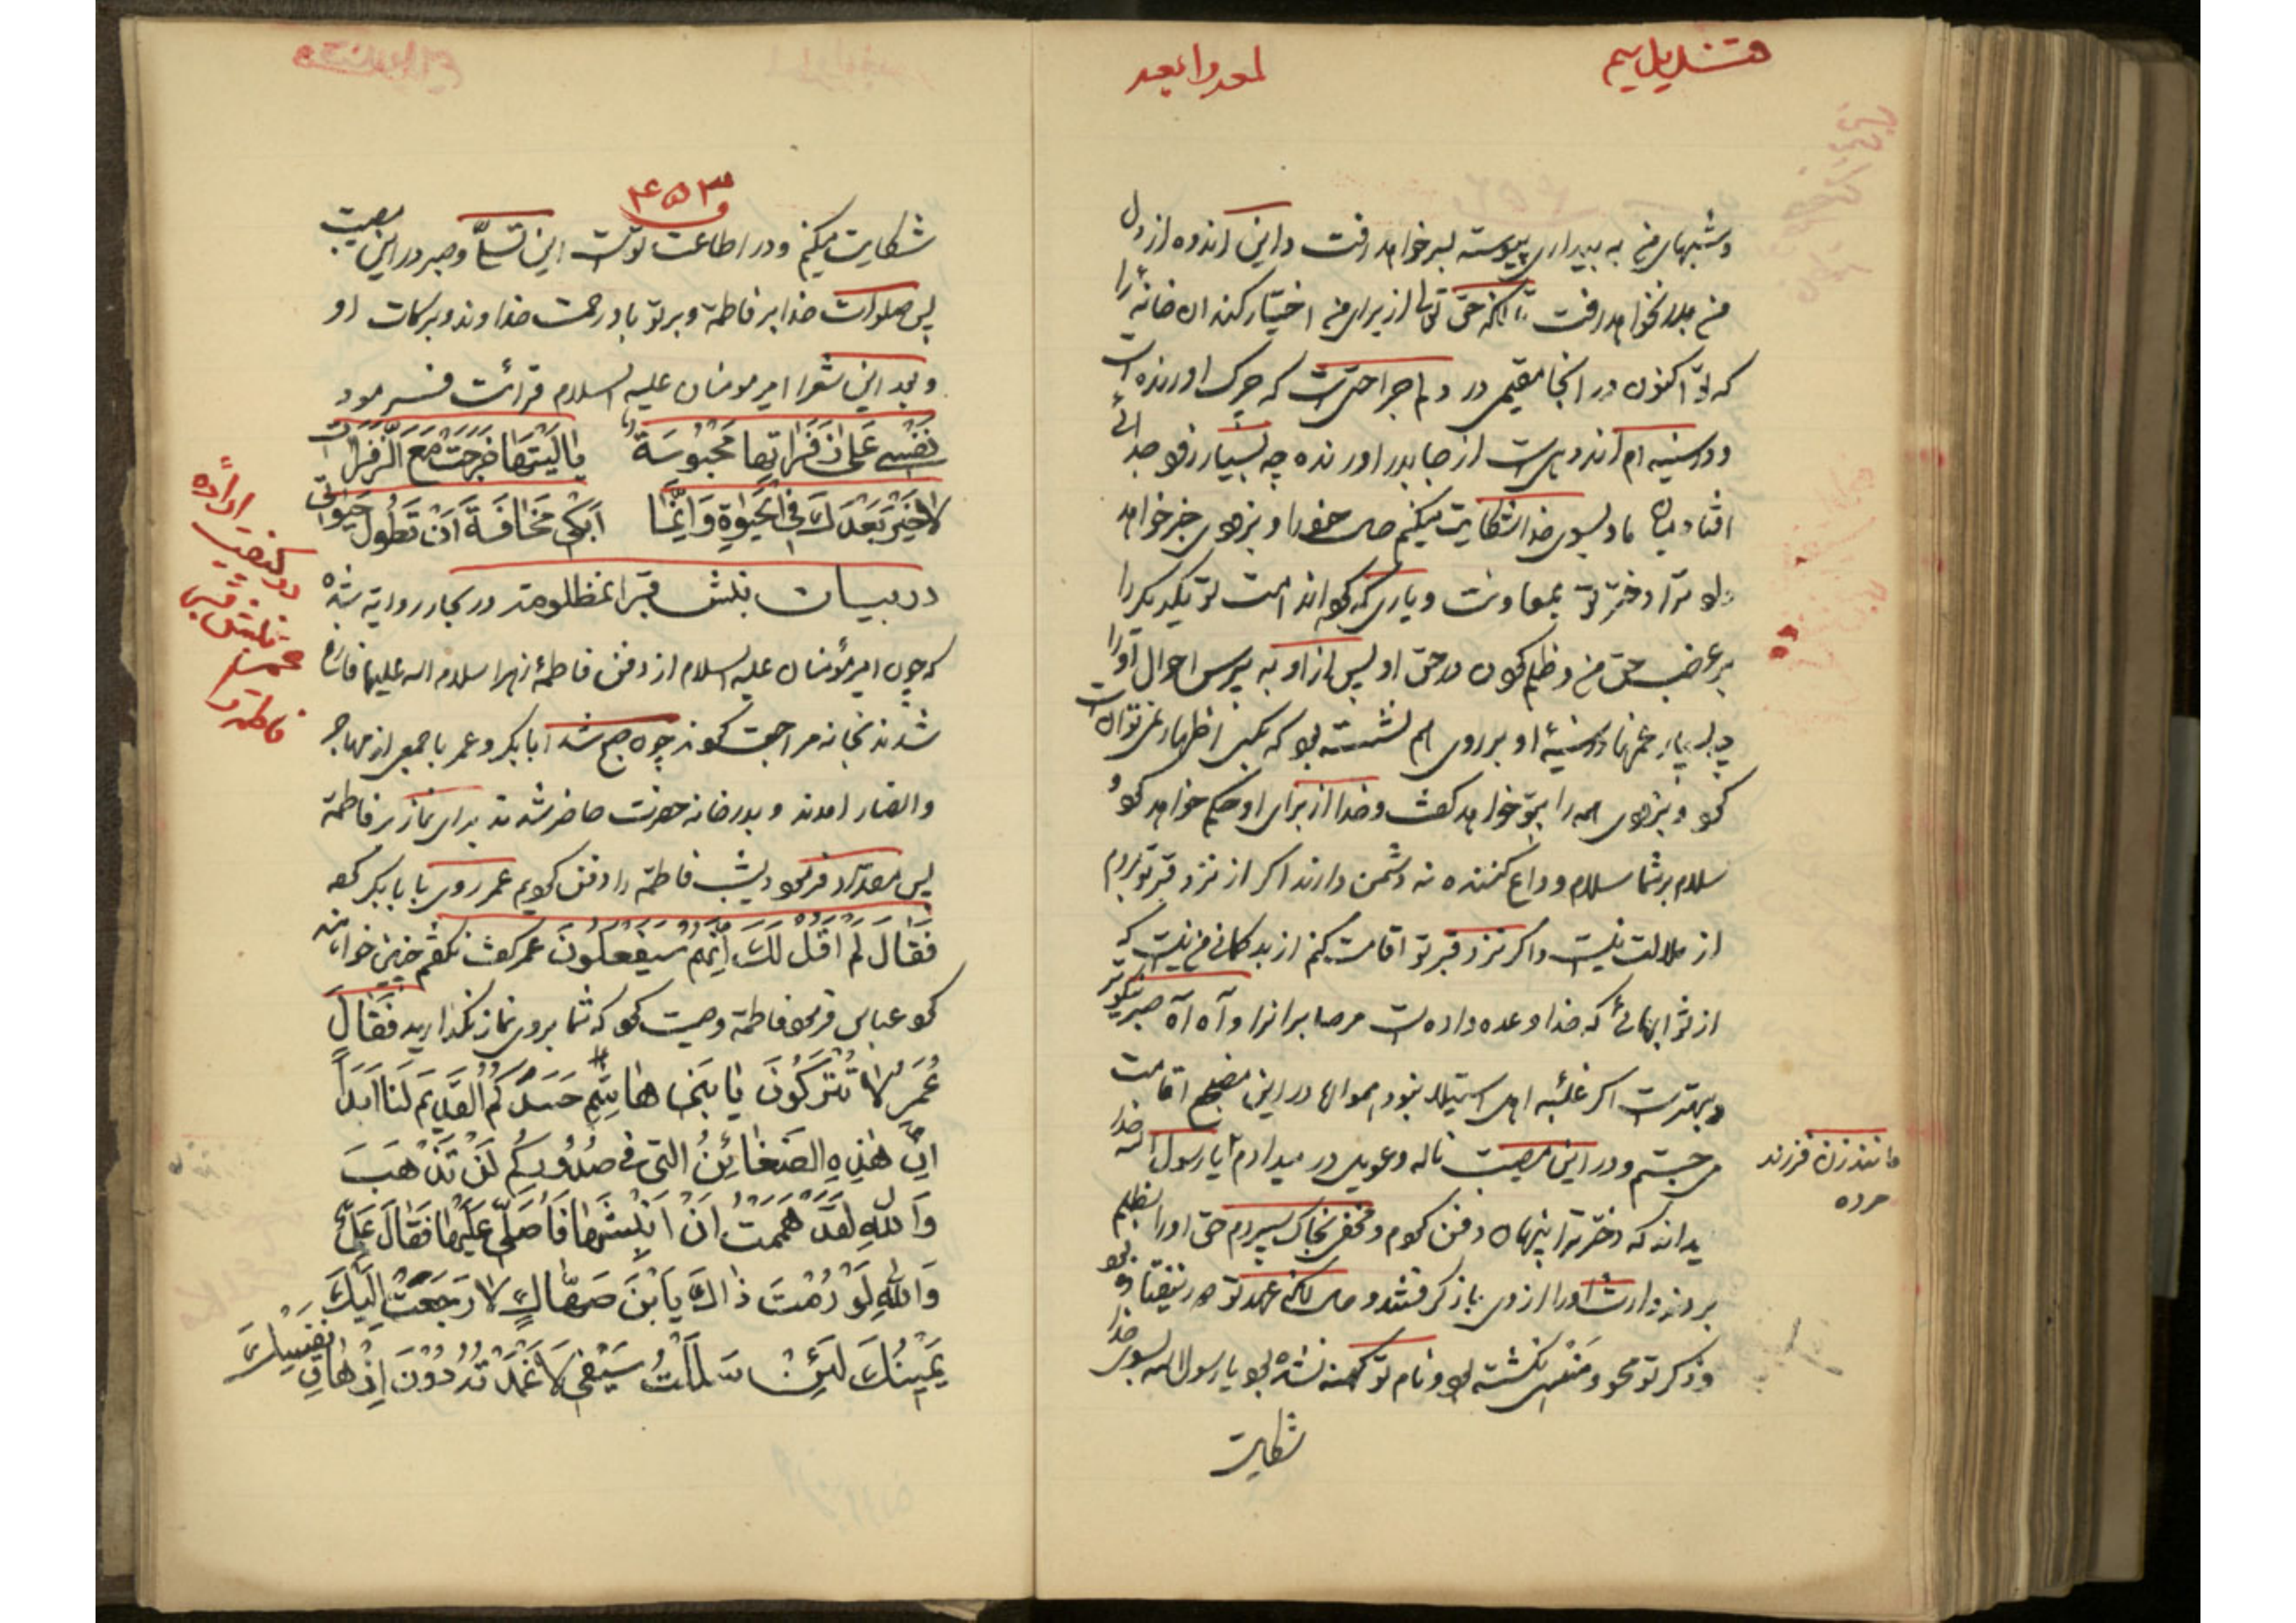 قندیل سیم
وشبهای من به بیداری پیوسته بسر خواهد رفت و این اندوه از دل
من بدر نخواهد رفت تا آنکه حق تعالی از برای من اختیار کند ان خانه را
که تو اکنون در آنجا مقیمی در دلم جراحتی است که چرک اورنده است
ودر سینه ام اندوهی است از جا بدر اورنده چه بسیار زود جدائی
افتاد میان ما و بسوی خدا شکایت میکنم حال خود را و بزودی خبر خواهد
داد ترا دختر تو بمعاونت و یاری کردن امت تو یکدیگر را
بر غصب حق من و ظلم کردن در حق او پس از او به پرس احوال او را
چه بسیار غمها در سینه او بر روی هم نشسته بود که بکسی اظهار نمی توانست
کرد و بزودی همه را بتو خواهد گفت و خدا از برای او حکم خواهد کرد
سلام بر شما سلام وداع کننده نه دشمن دارنده اگر از نزد قبر تو بروم
از ملالت نیست و اگر نزد قبر تو اقامت کنم از بد گمانی من نیست که
از ثوابهائی که خدا وعده داده است مر صابرانرا و آه آه صبر نیکوتر
و بهتر است اگر غلبه اهل استیلا نبود هموالا در این مضجع اقامت
می جستم و در این مصیبت ناله و عویل در میدادم یا رسول الله خدا
مانند زن فرزند
مرده
بداند که دختر ترا پنهان دفن کردم و مخفی بخاک سپردم حق او را بظلم
بردند و ارث او را از وی باز گرفتند و حال آنکه عهد تو در نیفتاده بود
و ذکر تو محو و منسی نگشته بود و نام تو کهنه نشده بود یا رسول الله بسوی خدا
شکایت
۴۵۳
شکایت میکنم و در اطاعت توست این تسلّا و صبر در این مصیبت
پس صلوات خدا بر فاطمة و بر تو باد و رحمت خداوند و برکات او
و بعد این شعر را امیر مومنان علیه السلام قرائت فرمود
نَفْسی عَلی زَفَراتِها مَحْبُوسَةٌ یا لَیْتَها خَرَجَتْ مَعَ الزَّفَراتِ
لا خَیْرَ بَعْدَكَ فِی الْحَیوةِ وَ اِنَّما اَبْکی مَخافَةَ اَنْ تَطُولَ حَیوتی
در بیان نبش قبر انمظلومه در بحار روایة شده
که چون امیر مؤمنان علیه السلام از دفن فاطمهٔ زهرا سلام الله علیها فارغ
شدند بخانه مراجعت کردند چون صبح شد ابا بکر و عمر با جمعی از مهاجر
و انصار امدند و بدر خانه حضرت حاضر شدند برای نماز بر فاطمة
پس مقداد فرمود دیشب فاطمه را دفن کردیم عمر روی با با بکر کرد
فَقالَ لَمْ اَقُلْ لَكَ اِنَّهُمْ سَیَفْعَلُونَ عمر گفت نگفتم چنین خواهند
کرد عباس فرمود فاطمة وصیت کرد که شما بر وی نماز نگذارید فَقالَ
عُمَرُ لا تَتْرُکُونَ یا بَنی هاشِمٍ حَسَدَکُمُ الْقَدیمَ لَنا اَبَداً
اِنَّ هٰذِهِ الضَّغائِنَ الَّتی فی صُدُورِکُمْ لَنْ تَذْهَبَ
وَاللهِ لَقَدْ هَمَمْتُ اَنْ اَنْبُشَها فَاُصَلِّیَ عَلَیْها فَقالَ عَلِیٌّ
وَاللهِ لَوْ رُمْتَ ذاكَ یَا بْنَ صَهّاكٍ لا رَجَعَتْ اِلَیْكَ
یَمینُكَ لَئِنْ سَلَلْتُ سَیْفی لا غَمَدْتُهُ دُونَ اِزْهاقِ نَفْسِكَ
در کیفیت اراده
نبش قبر
عمر
فاطمه را